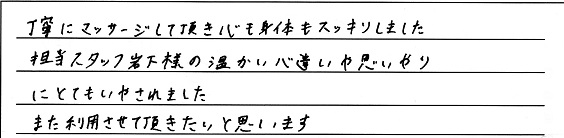 丁寧にマッサージして頂き心も身体もスッキリしました
担当スタッフ岩下様の温かい心遣いや思いやり
にとてもいやされました
また利用させて頂きたいと思います